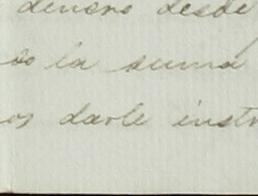 dinero desde
la suma
os darle instr